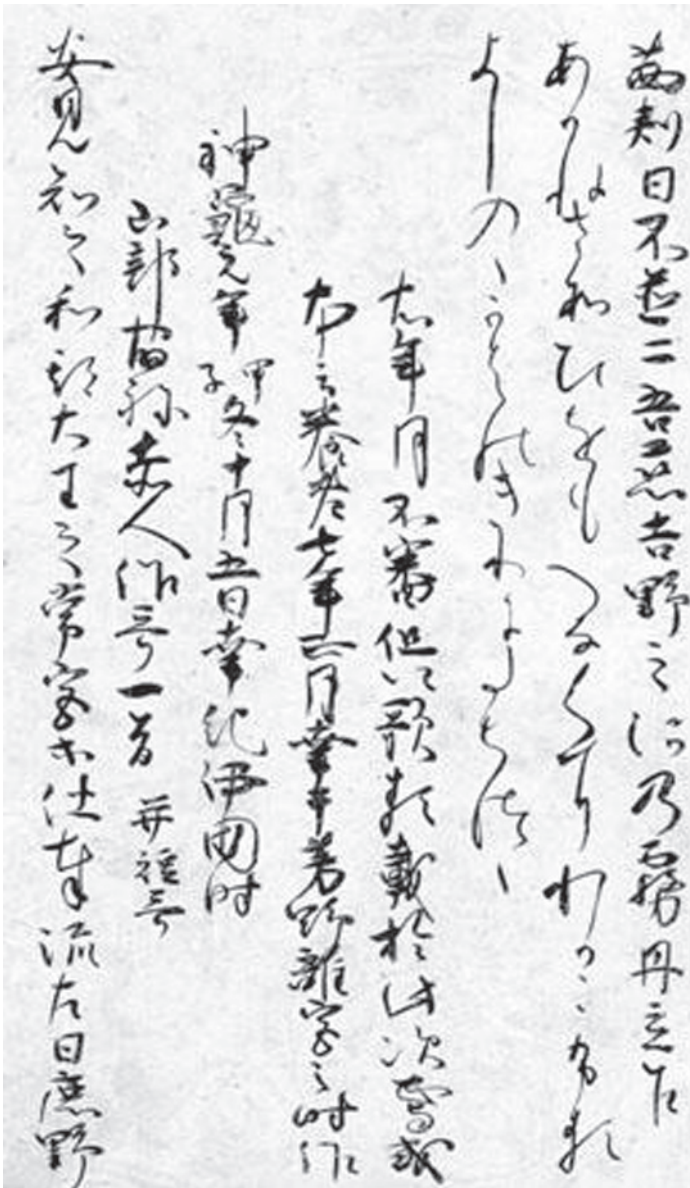 茜刺日不並二吾恋吉野之河乃霧丹立乍
あかねさすひをもへなくにわかこふる
よしのゝかはのきりにたちつゝ
右年月不審但以歌類載於此次焉或
本云養老七年五月幸于芳野離宮之時作
神龜元年甲子冬十月五日幸紀伊国時
山部宿祢赤人作哥一首 并短哥
安見知之和期大王之常宮等仕奉流左日鹿野